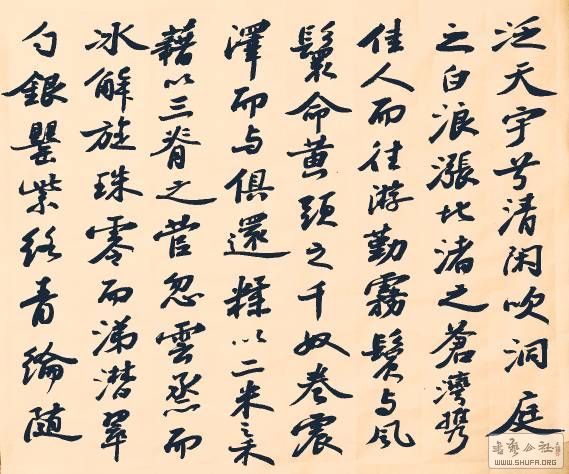 泛天宇兮清閑吹洞庭
之白浪漲北渚之蒼灣攜
佳人而往游勤霧鬢与風
鬟命黃頭之千奴卷震
澤而与俱還糅以二米之禾
藉以三脊之菅忽雲烝而
冰解旋珠零而涕潸翠
勺銀罌紫絡青綸隨
WWW.SHUFA.ORG